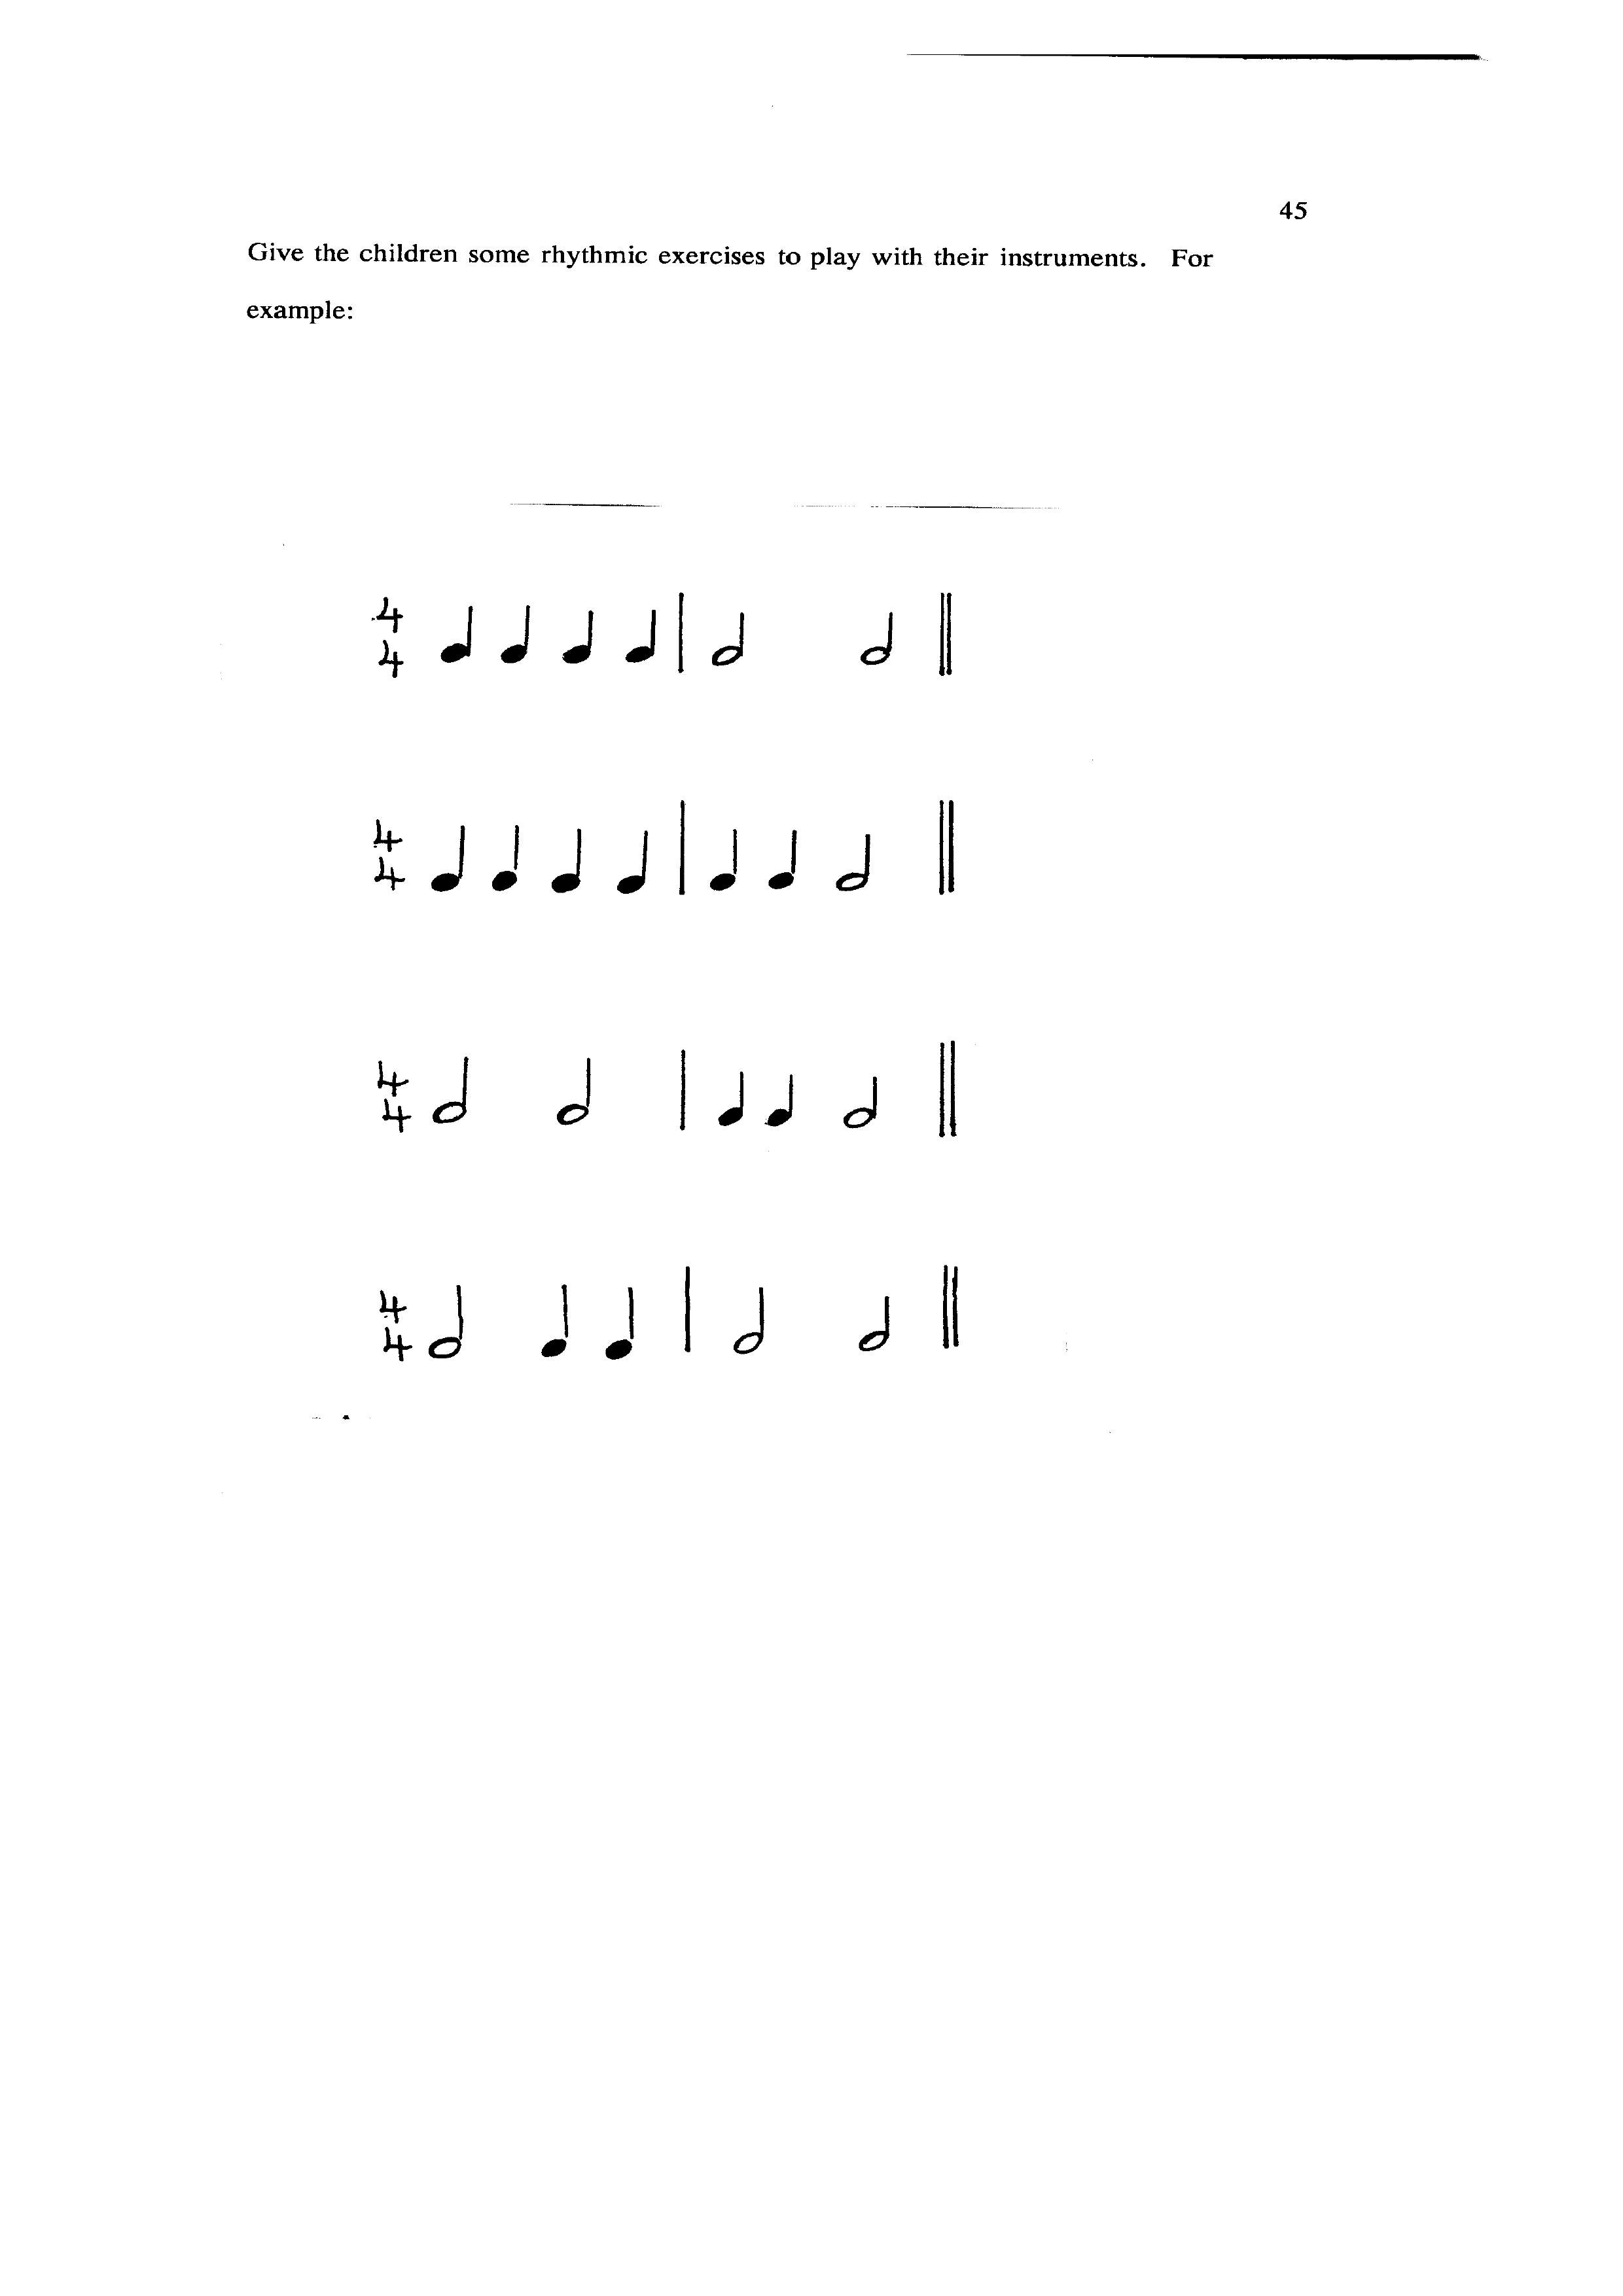 45
Give the children some rhythmic exercises to play with their instruments. For
example:
4
4
4
4
4
4
4
4